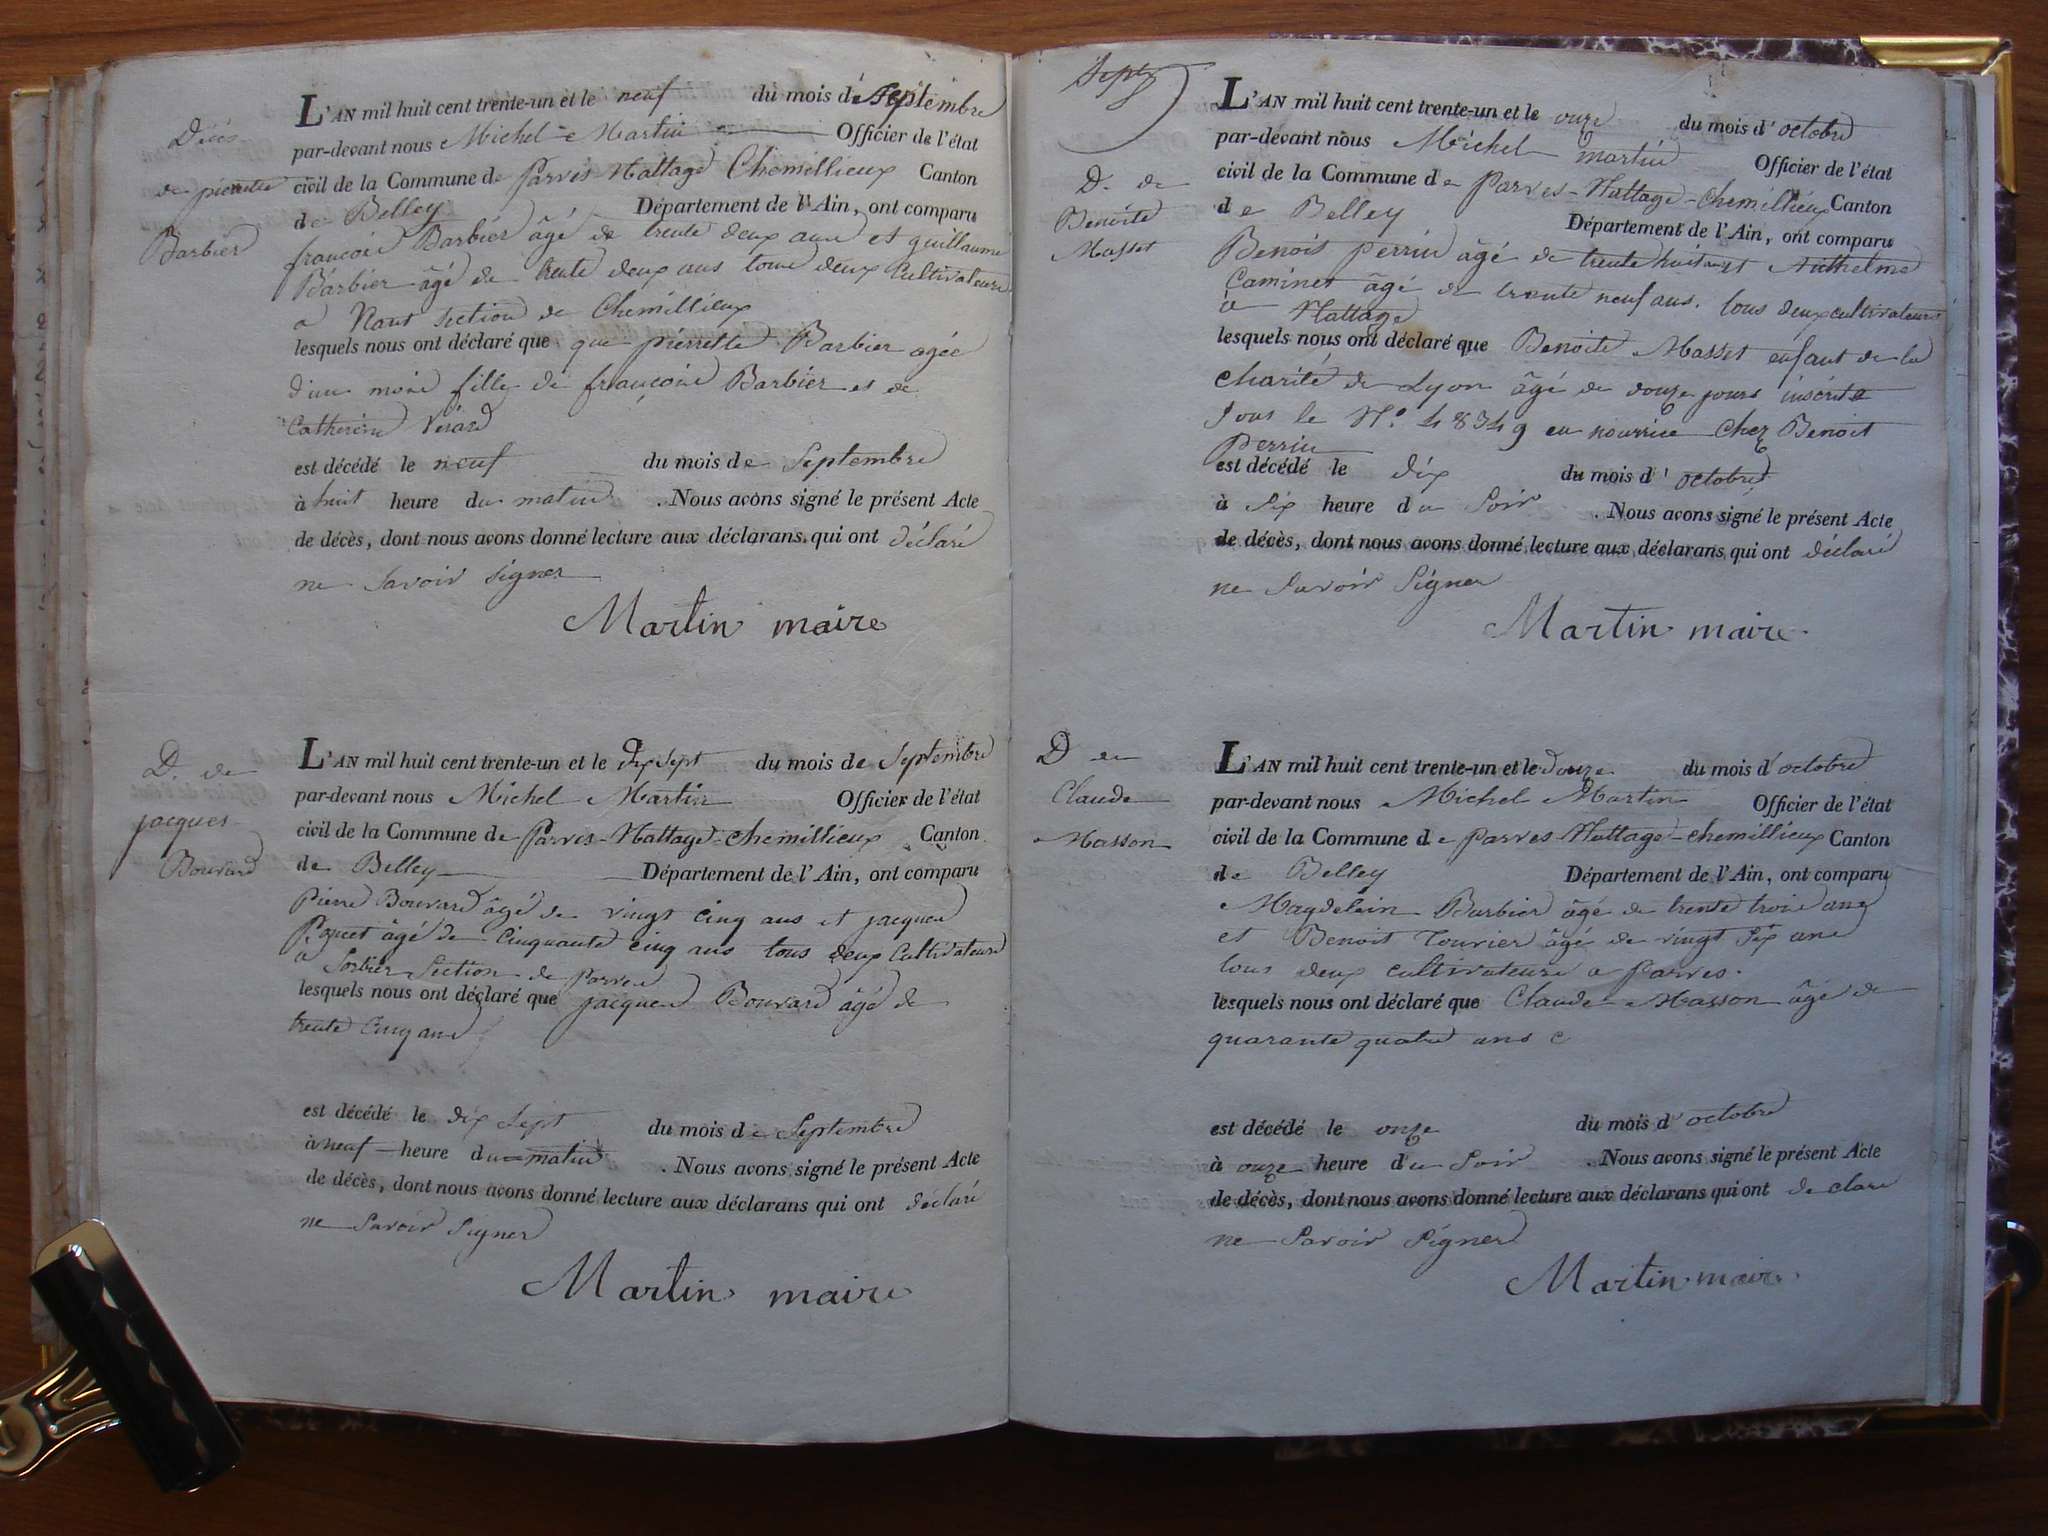 Décès
de pierrette
Barbier
L'AN mil huit cent trente-un et le neuf du mois de Septembre
par-devant nous Michel Martin Officier de l'état
civil de la Commune de Parves Nattage Chemillieux Canton
de Belley Département de l'Ain, ont comparu
françois Barbier âgé de trente deux ans et guillaume
Barbier âgé de trente deux ans tous deux Cultivateurs
a Nant Section de Chemillieux
lesquels nous ont déclaré que que pierrette Barbier agée
d'un mois fille de françois Barbier et de
Catherine Vérard
est décédé le neuf du mois de Septembre
à huit heure du matin . Nous avons signé le présent Acte
de décès, dont nous avons donné lecture aux déclarans qui ont déclaré
ne Savoir signer
Martin maire
D. de
jacques
Bouvard
L'AN mil huit cent trente-un et le dix Sept du mois de Septembre
par-devant nous Michel Martin Officier de l'état
civil de la Commune de Parves-Nattage-chemillieux Canton
de Belley Département de l'Ain, ont comparu
Pierre Bouvard âgé de vingt cinq ans et jacques
âgé de Cinquante cinq ans tous deux Cultivateurs
a Sorbier Section de Parves
lesquels nous ont déclaré que jacques Bouvard âgé de
trente Cinq ans
est décédé le dix Sept du mois de Septembre
à neuf heure du matin . Nous avons signé le présent Acte
de décès, dont nous avons donné lecture aux déclarans qui ont déclaré
ne Savoir Signer
Martin maire
Sept
D. de
Benoite
Masset
L'AN mil huit cent trente-un et le onze du mois d'octobre
par-devant nous Michel martin Officier de l'état
civil de la Commune de Parves-Nattage-Chemillieux Canton
de Belley Département de l'Ain, ont comparu
Benoit Perrin âgé de trente huit ans et Anthelme
Caminet âgé de trente neuf ans. tous deux cultivateurs
a Nattage
lesquels nous ont déclaré que Benoite Masset enfant de la
Charité de Lyon âgé de douze jours inscrite
Sous le N° 48349 en nourrice Chez Benoit
Perrin
est décédé le dix du mois d'octobre
à Six heure du Soir . Nous avons signé le présent Acte
de décès, dont nous avons donné lecture aux déclarans qui ont déclaré
ne Savoir Signer
Martin maire
D de
Claude
Masson
L'AN mil huit cent trente-un et le Douze du mois d'octobre
par-devant nous Michel Martin Officier de l'état
civil de la Commune de Parves-Nattage-chemillieux Canton
de Belley Département de l'Ain, ont comparu
Magdelain Barbier âgé de trente trois ans
et Benoit Tournier âgé de vingt Six ans
tous deux cultivateurs a Parves.
lesquels nous ont déclaré que Claude Masson âgé de
quarante quatre ans
est décédé le onze du mois d'octobre
à onze heure du Soir . Nous avons signé le présent Acte
de décès, dont nous avons donné lecture aux déclarans qui ont declaré
ne Savoir Signer
Martin maire